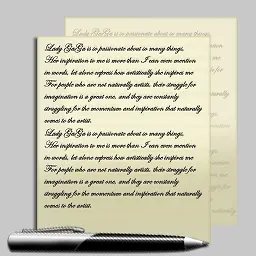 Lady GaGa is so passionate about so many things,
Her inspiration to me is more than I can even mention
in words, let alone express how artistically she inspires me
For people who are not naturally artists, their struggle for
imagination is a great one, and they are constantly
struggling for the momentum and inspiration that naturally
comes to the artist.
Lady GaGa is so passionate about so many things,
Her inspiration to me is more than I can even mention
in words, let alone express how artistically she inspires me
For people who are not naturally artists, their struggle for
imagination is a great one, and they are constantly
struggling for the momentum and inspiration that naturally
comes to the artist.
Lady GaGa is so passionate about so many things,